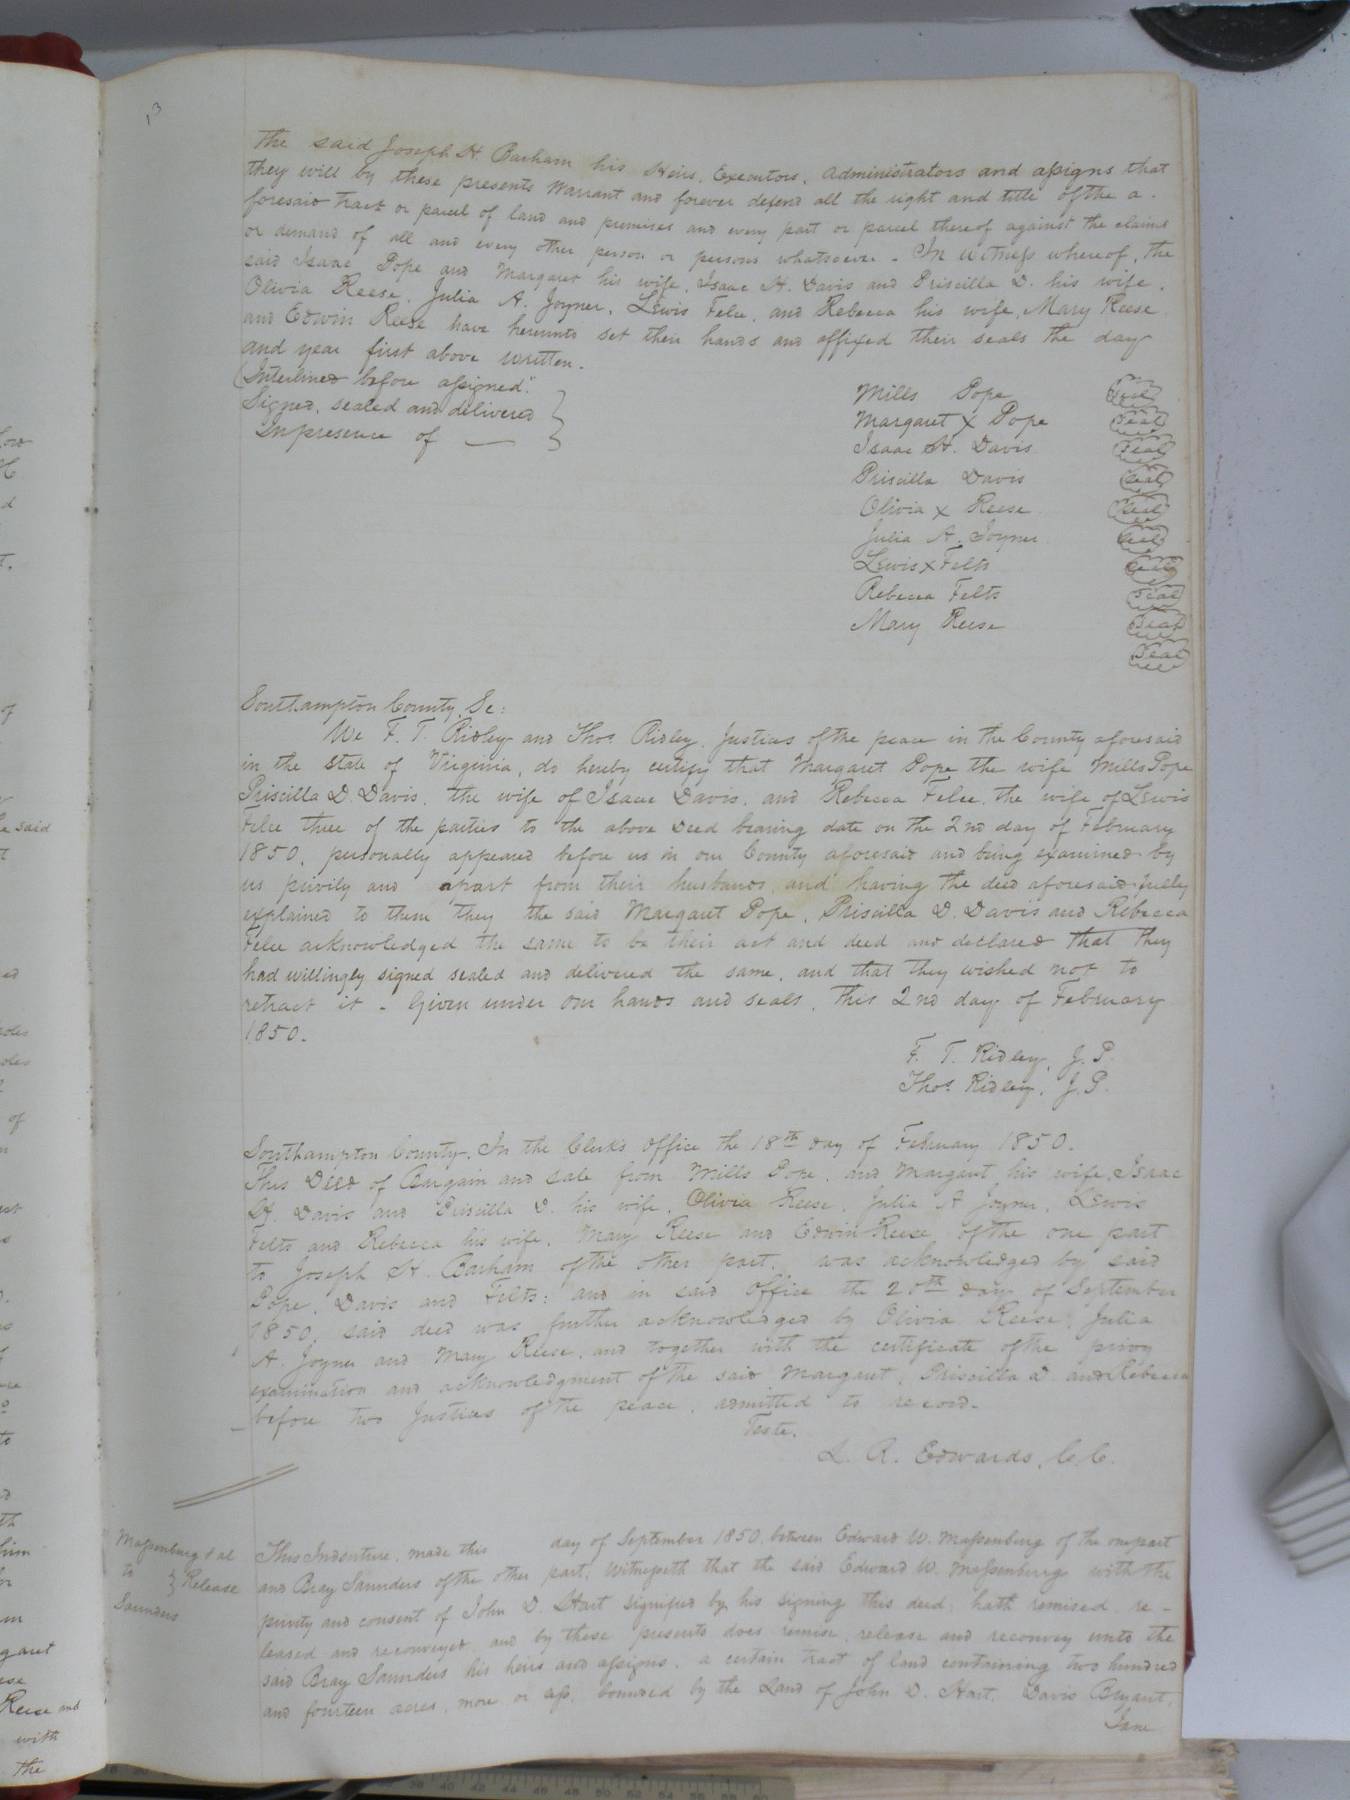 13
The said Joseph H. Barham his Heirs, Executors, Administrators and assigns that
they will by these presents Warrant and forever defend all the right and title of the a-
foresaid tract or parcel of land and premises and every part or parcel thereof against the claims
or demand of all and every other person or persons whatsoever - In witness whereof, the
said Isaac Pope and Margaret his wife, Isaac H. Davis and Priscilla D. his wife,
Olivia Reese, Julia A. Joyner, Lewis Felce, and Rebecca his wife, Mary Reese
and Edwin Reese have hereunto set their hands and affixed their seals the day
and year first above written.
(Interlined before assigned".
Signed, sealed and delivered
In presence of —
Mills Pope Seal
Margaret X Pope Seal
Isaac H. Davis Seal
Priscilla Davis Seal
Olivia X Reese Seal
Julia A. Joyner Seal
Lewis X Felts Seal
Rebecca Felts Seal
Mary Reese Seal
Seal
Southampton County, Sc:
We F. T. Ridley and Thos. Ridley, Justices of the peace in the County aforesaid
in the State of Virginia, do hereby certify that Margaret Pope the wife Mills Pope
Priscilla D. Davis, the wife of Isaac Davis, and Rebecca Felce, the wife of Lewis
Felce three of the parties to the above Deed bearing date on the 2nd day of February
1850, personally appeared before us in our County aforesaid and being examined by
us privily and apart from their husbands, and having the deed aforesaid fully
explained to them they the said Margaret Pope, Priscilla D. Davis and Rebecca
Felce acknowledged the same to be their act and deed and declared that they
had willingly signed sealed and delivered the same, and that they wished not to
retract it - Given under our hands and seals, this 2nd day of February
1850.
F. T. Ridley, J. P.
Thos. Ridley, J. P.
Southampton County. In the Clerk's Office the 18th day of February 1850.
This Deed of Bargain and sale from Mills Pope, and Margaret his wife, Isaac
H. Davis and Priscilla D. his wife, Olivia Reese, Julia A Joyner, Lewis
Felts and Rebecca his wife, Mary Reese and Edwin Reese of the one part
to Joseph H. Barham of the other part, was acknowledged by said
Pope, Davis and Felts: and in said Office the 20th day of September
1850, said deed was further acknowledged by Olivia Reese, Julia
A. Joyner and Mary Reese, and together with the certificate of the privy
examination and acknowledgment of the said Margaret, Priscilla D. and Rebecca
before two Justices of the peace, admitted to record.
Teste,
L. R. Edwards, C. C.
Massenburg & al
to } Release
Saunders
This Indenture, made this day of September 1850, between Edward W. Massenburg of the one part
and Bray Saunders of the other part, Witnesseth that the said Edward W. Massenburg with the
purity and consent of John D. Hart signified by his signing this deed, hath remised, re-
leased and reconveyed, and by these presents does remise, release and reconvey unto the
said Bray Saunders his heirs and assigns, a certain tract of land containing two hundred
and fourteen acres, more or less, bounded by the Land of John D. Hart, Davis Bryant,
Jane